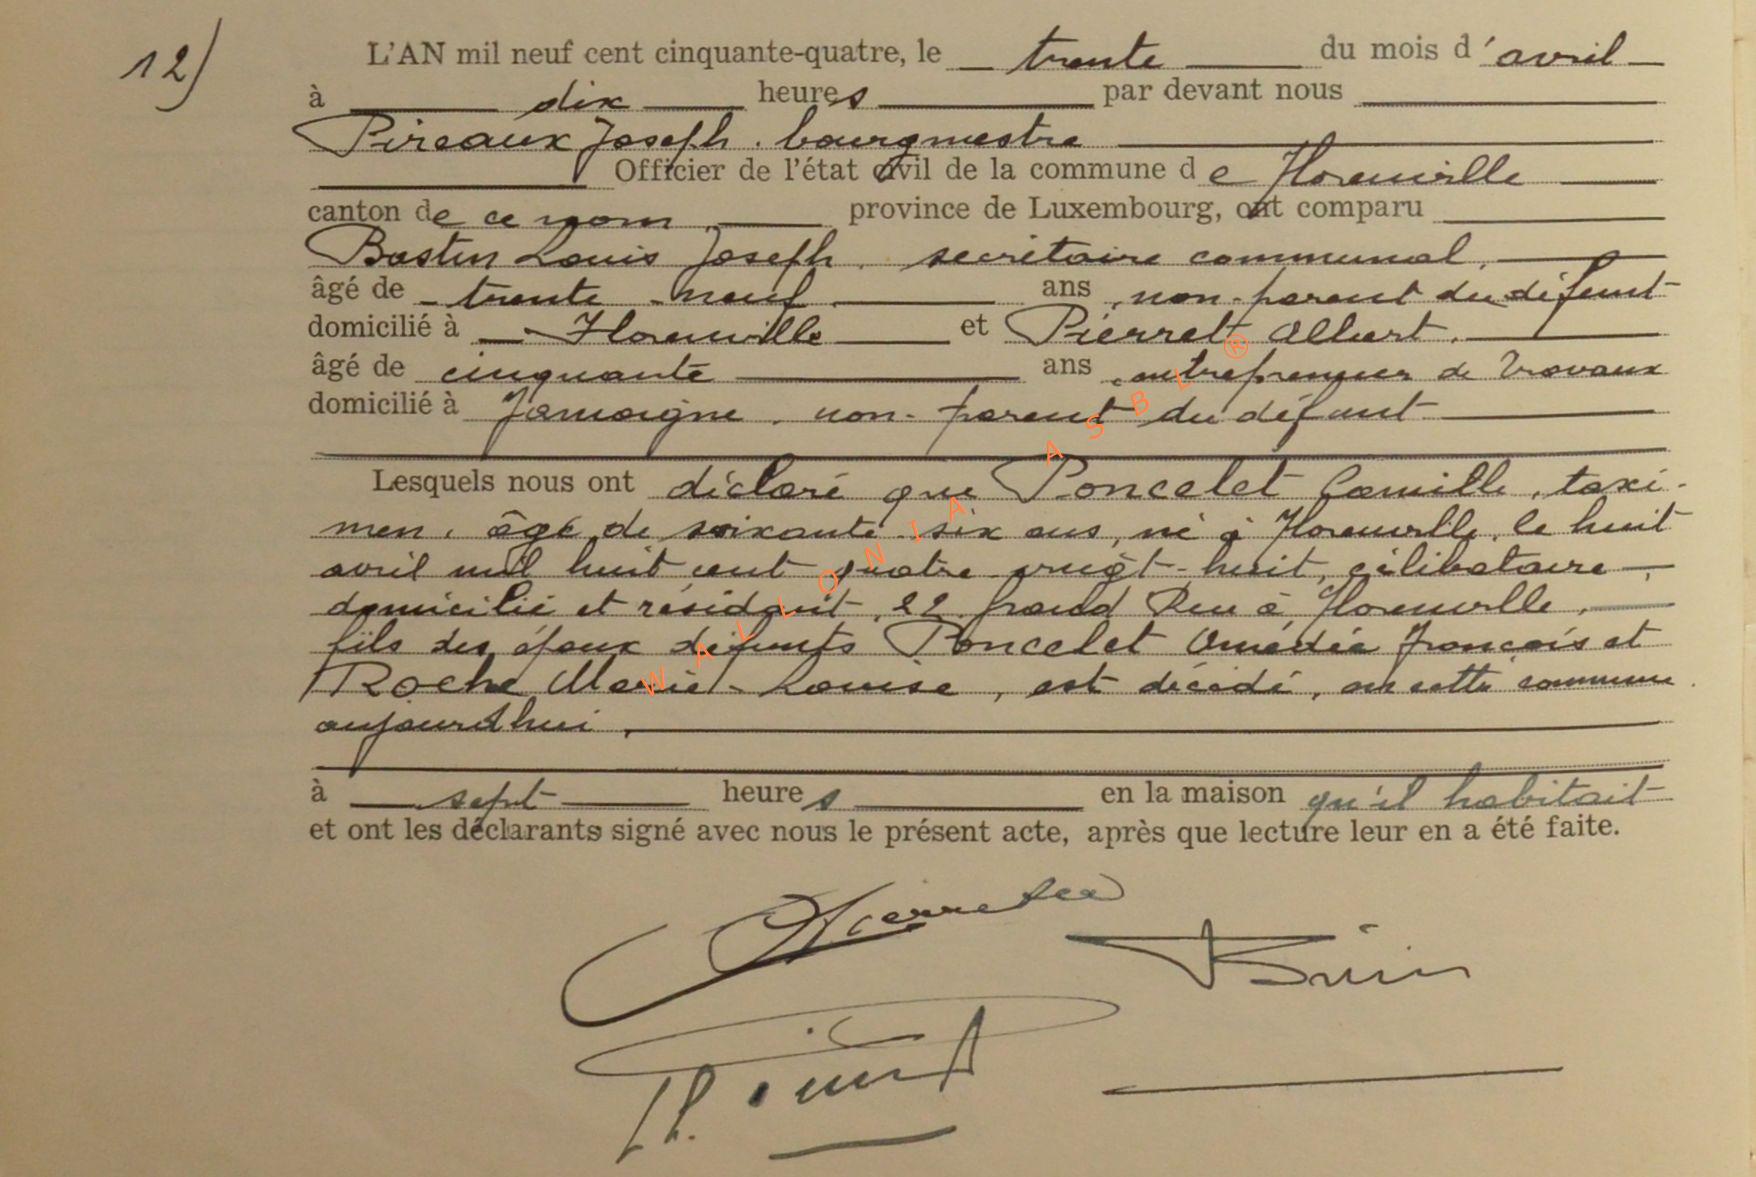 12)
L'AN mil neuf cent cinquante-quatre, le trente du mois d'avril
à dix heures par devant nous
Pireaux Joseph. bourgmestre
Officier de l'état civil de la commune de Florenville
canton de ce nom, province de Luxembourg, ont comparu
Bastin Louis Joseph, secrétaire communal,
âgé de trente-neuf ans, non-parent du défunt
domicilié à Florenville et Pierret Albert,
âgé de cinquante ans, entrepreneur de travaux
domicilié à Jamoigne, non-parent du défunt
Lesquels nous ont déclaré que Poncelet Camille, taxi-
men, âgé de soixante-six ans, né à Florenville, le huit
avril mil huit cent quatre-vingt-huit, célibataire,
domicilié et résidant, 22 grand Rue à Florenville,
fils des époux défunts Poncelet Amédée François et
Roche Marie-Louise, est décédé, en cette commune
aujourd'hui,
à sept heures en la maison qu'il habitait
et ont les déclarants signé avec nous le présent acte, après que lecture leur en a été faite.
WALLONIA ASBL®